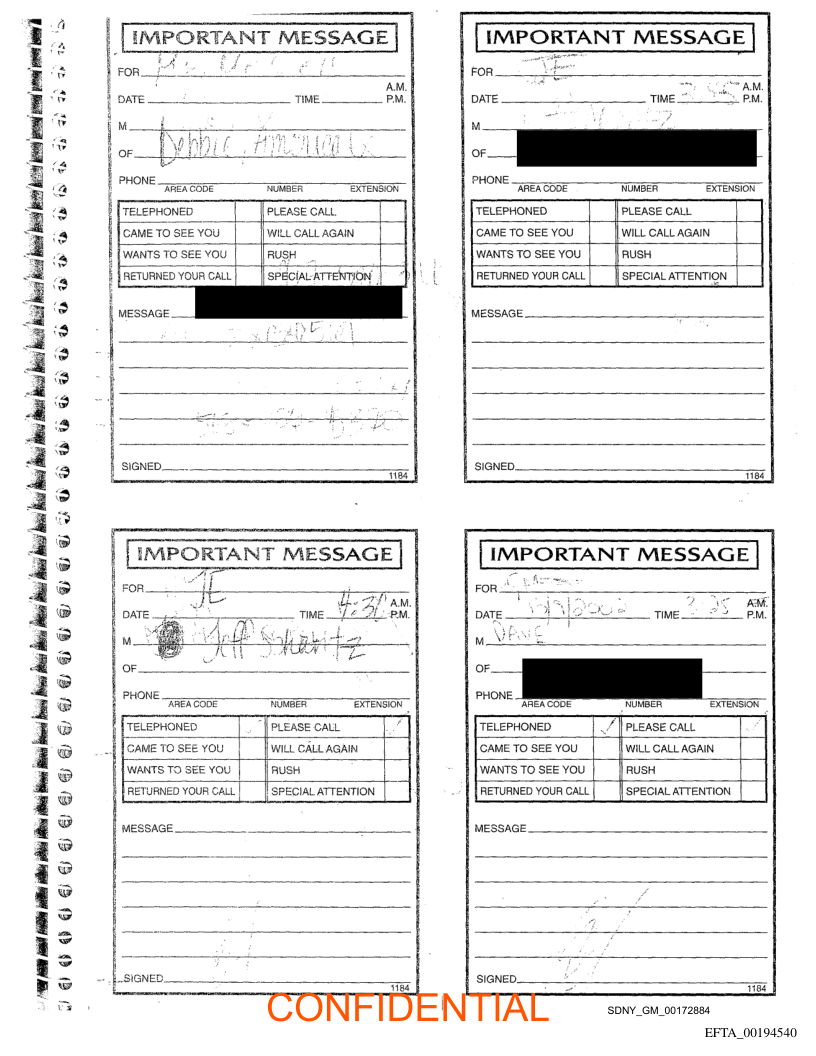 IMPORTANT MESSAGE
FOR
A.M.
DATE TIME P.M.
M
OF Debbie,
PHONE
AREA CODE NUMBER EXTENSION
TELEPHONED PLEASE CALL
CAME TO SEE YOU WILL CALL AGAIN
WANTS TO SEE YOU RUSH
RETURNED YOUR CALL SPECIAL ATTENTION
MESSAGE
SIGNED
1184
IMPORTANT MESSAGE
FOR JE
A.M.
DATE TIME 3:45 P.M.
M
OF
PHONE
AREA CODE NUMBER EXTENSION
TELEPHONED PLEASE CALL
CAME TO SEE YOU WILL CALL AGAIN
WANTS TO SEE YOU RUSH
RETURNED YOUR CALL SPECIAL ATTENTION
MESSAGE
SIGNED
1184
IMPORTANT MESSAGE
FOR JE
A.M.
DATE TIME 4:31 P.M.
M Jeff
OF
PHONE
AREA CODE NUMBER EXTENSION
TELEPHONED PLEASE CALL
CAME TO SEE YOU WILL CALL AGAIN
WANTS TO SEE YOU RUSH
RETURNED YOUR CALL SPECIAL ATTENTION
MESSAGE
SIGNED
1184
IMPORTANT MESSAGE
FOR
A.M.
DATE TIME 3:25 P.M.
M DAVE
OF
PHONE
AREA CODE NUMBER EXTENSION
TELEPHONED PLEASE CALL
CAME TO SEE YOU WILL CALL AGAIN
WANTS TO SEE YOU RUSH
RETURNED YOUR CALL SPECIAL ATTENTION
MESSAGE
SIGNED
1184
CONFIDENTIAL
SDNY_GM_00172884
EFTA_00194540